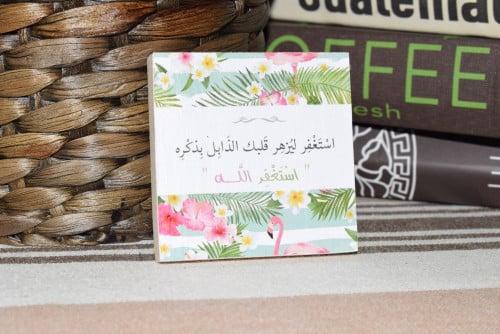 Guatemala
COFFEE
esh
اسْتَغْفِر لِيُزهِر قَلبك الذَابِلَ بِذِكْرِه
" استَغْفِر اللَّـه "